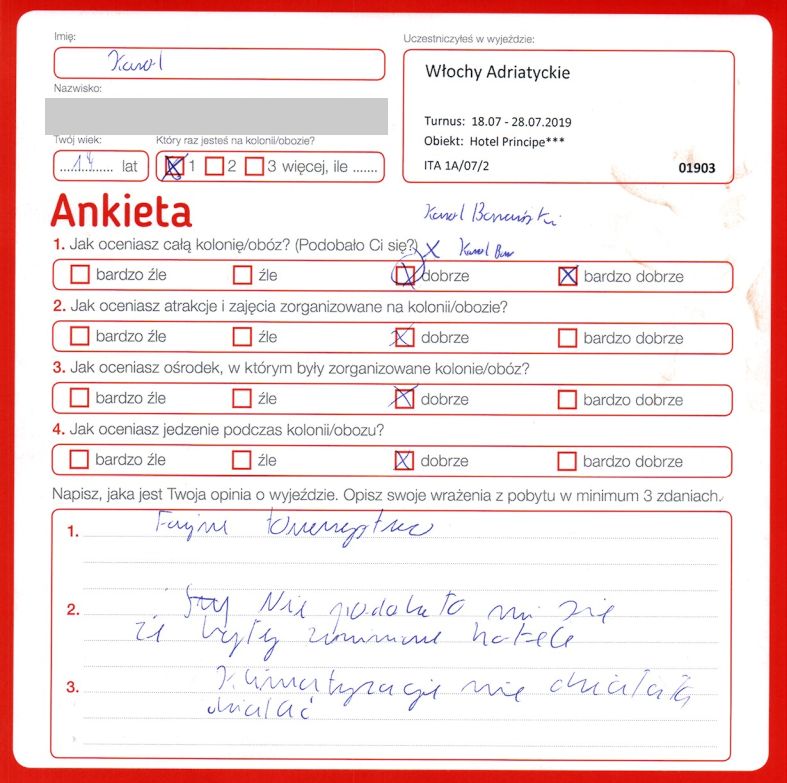 Imię:
Karol
Uczestniczyłeś w wyjeździe:
Włochy Adriatyckie
Turnus: 18.07 - 28.07.2019
Obiekt: Hotel Principe***
ITA 1A/07/2
01903
Nazwisko:
Twój wiek:
14 lat
Który raz jesteś na kolonii/obozie?
1 2 3 więcej, ile .......
Ankieta
Karol
1. Jak oceniasz całą kolonię/obóz? (Podobało Ci się?)
Karol
bardzo źle źle dobrze bardzo dobrze
2. Jak oceniasz atrakcje i zajęcia zorganizowane na kolonii/obozie?
bardzo źle źle dobrze bardzo dobrze
3. Jak oceniasz ośrodek, w którym były zorganizowane kolonie/obóz?
bardzo źle źle dobrze bardzo dobrze
4. Jak oceniasz jedzenie podczas kolonii/obozu?
bardzo źle źle dobrze bardzo dobrze
Napisz, jaka jest Twoja opinia o wyjeździe. Opisz swoje wrażenia z pobytu w minimum 3 zdaniach.
1. Fajne towarzystwo
2. Nie podobało mi się
że były hotele
3. Klimatyzacja nie działała
działać